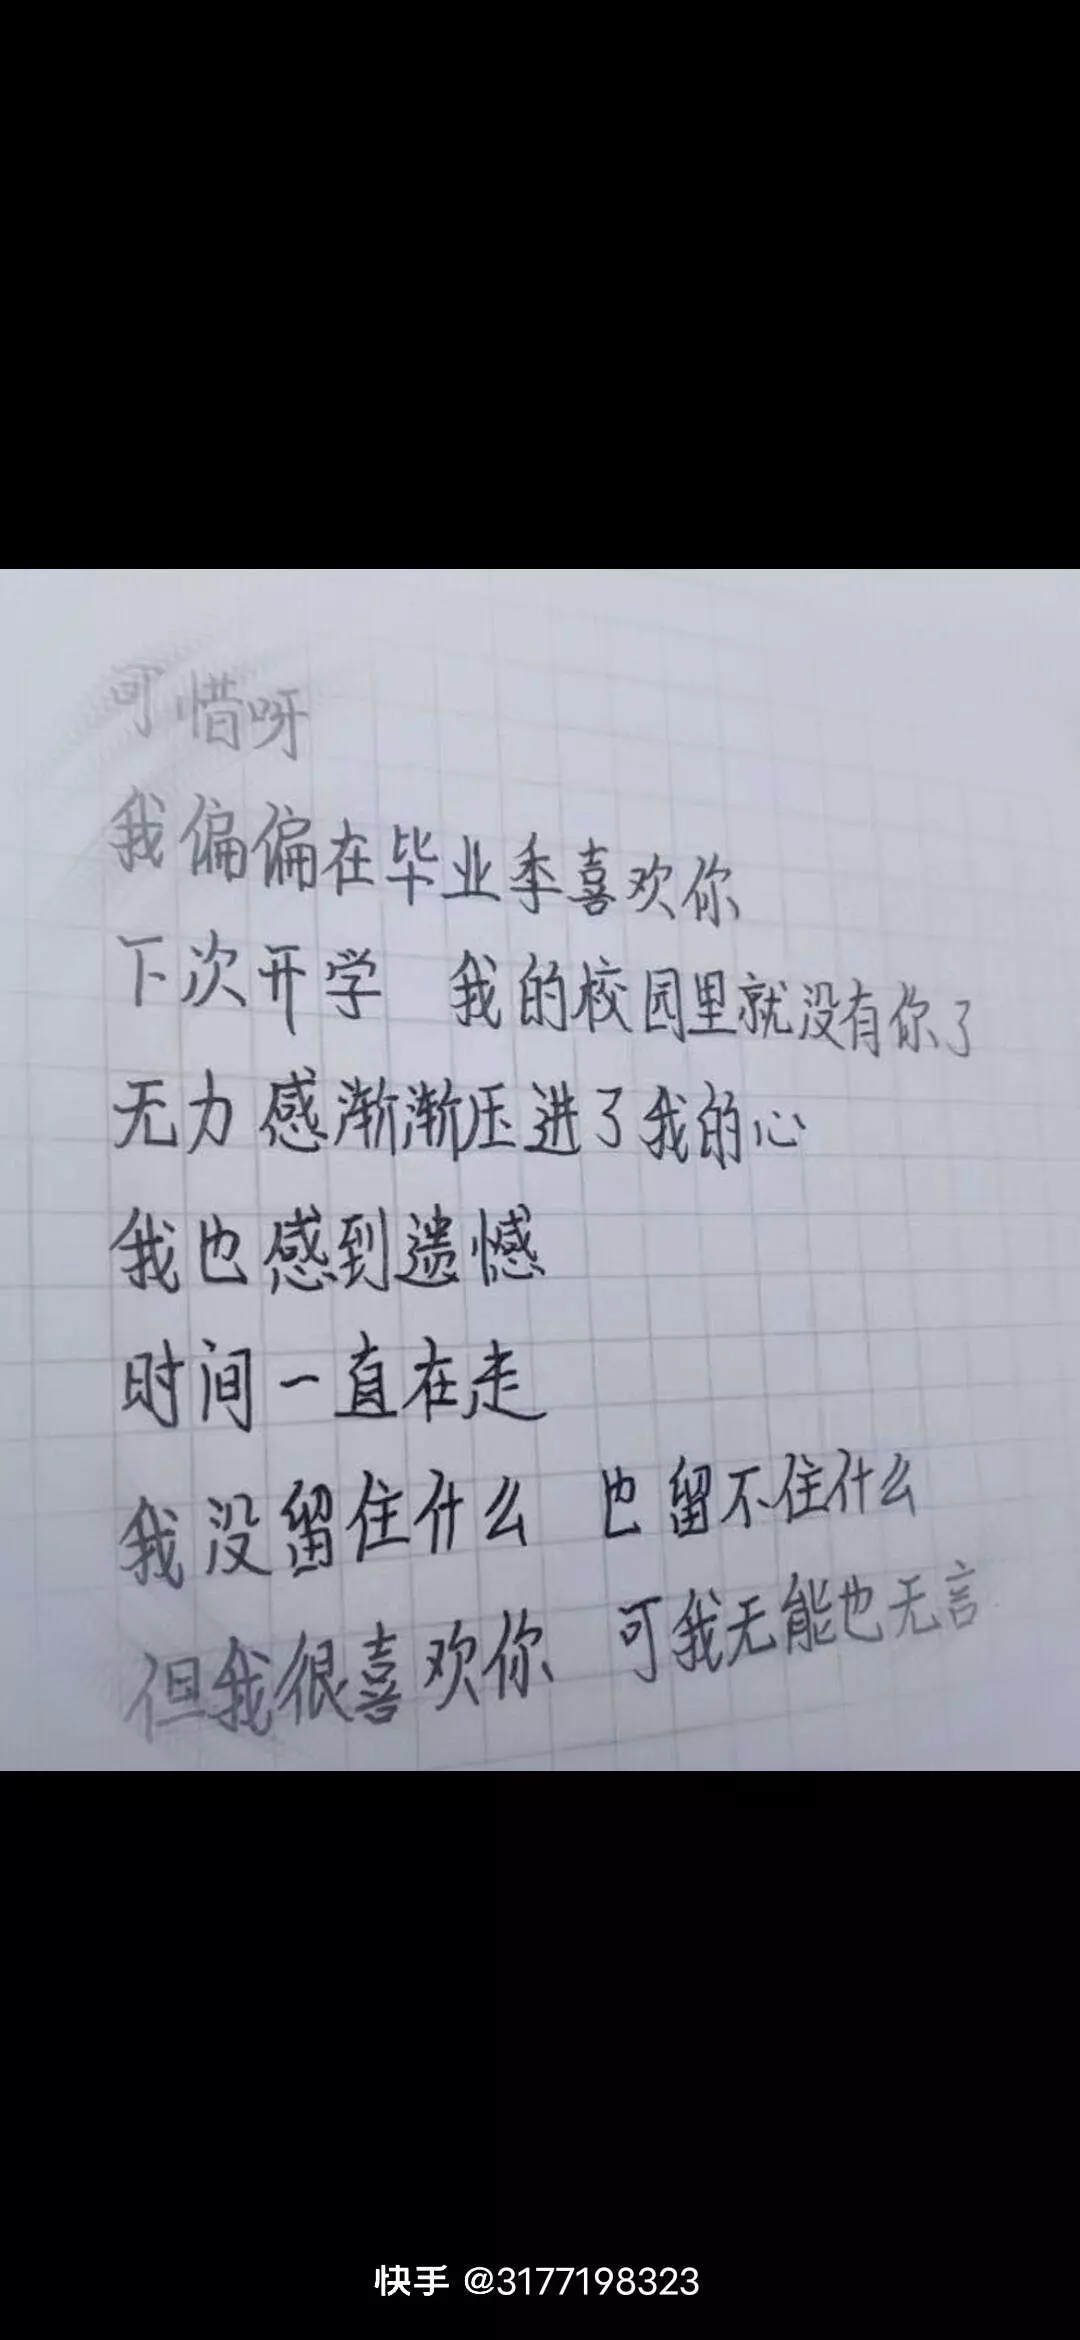 可惜呀
我偏偏在毕业季喜欢你
下次开学 我的校园里就没有你了
无力感渐渐压进了我的心
我也感到遗憾
时间一直在走
我没留住什么 也留不住什么
但我很喜欢你 可我无能也无言
快手 @3177198323